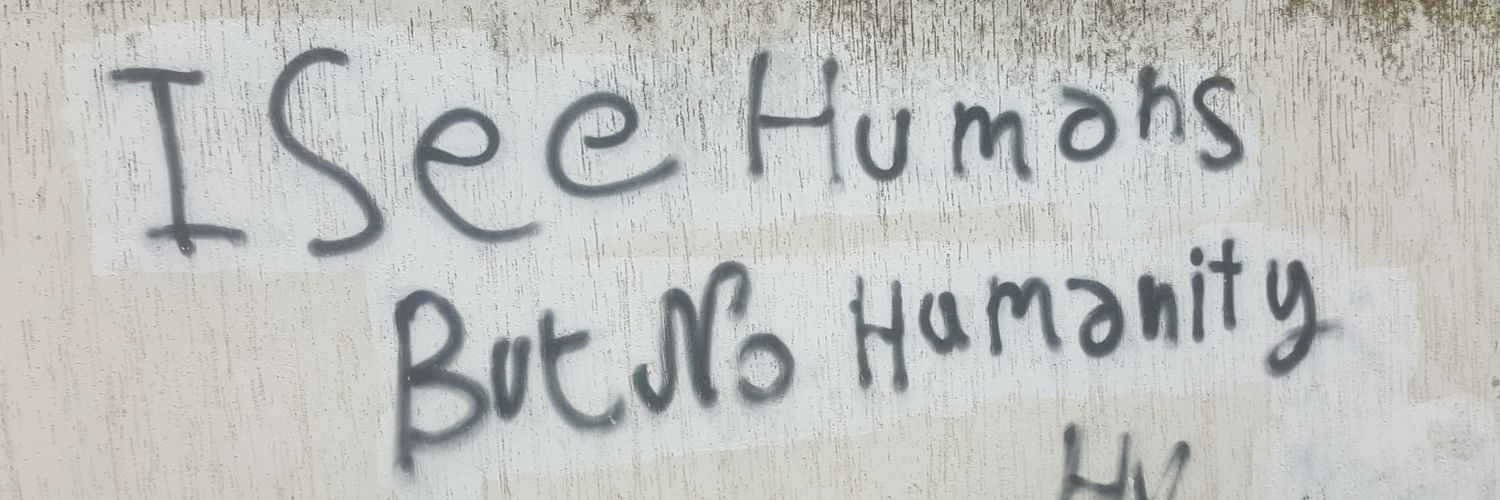 I See Humans
But No Humanity